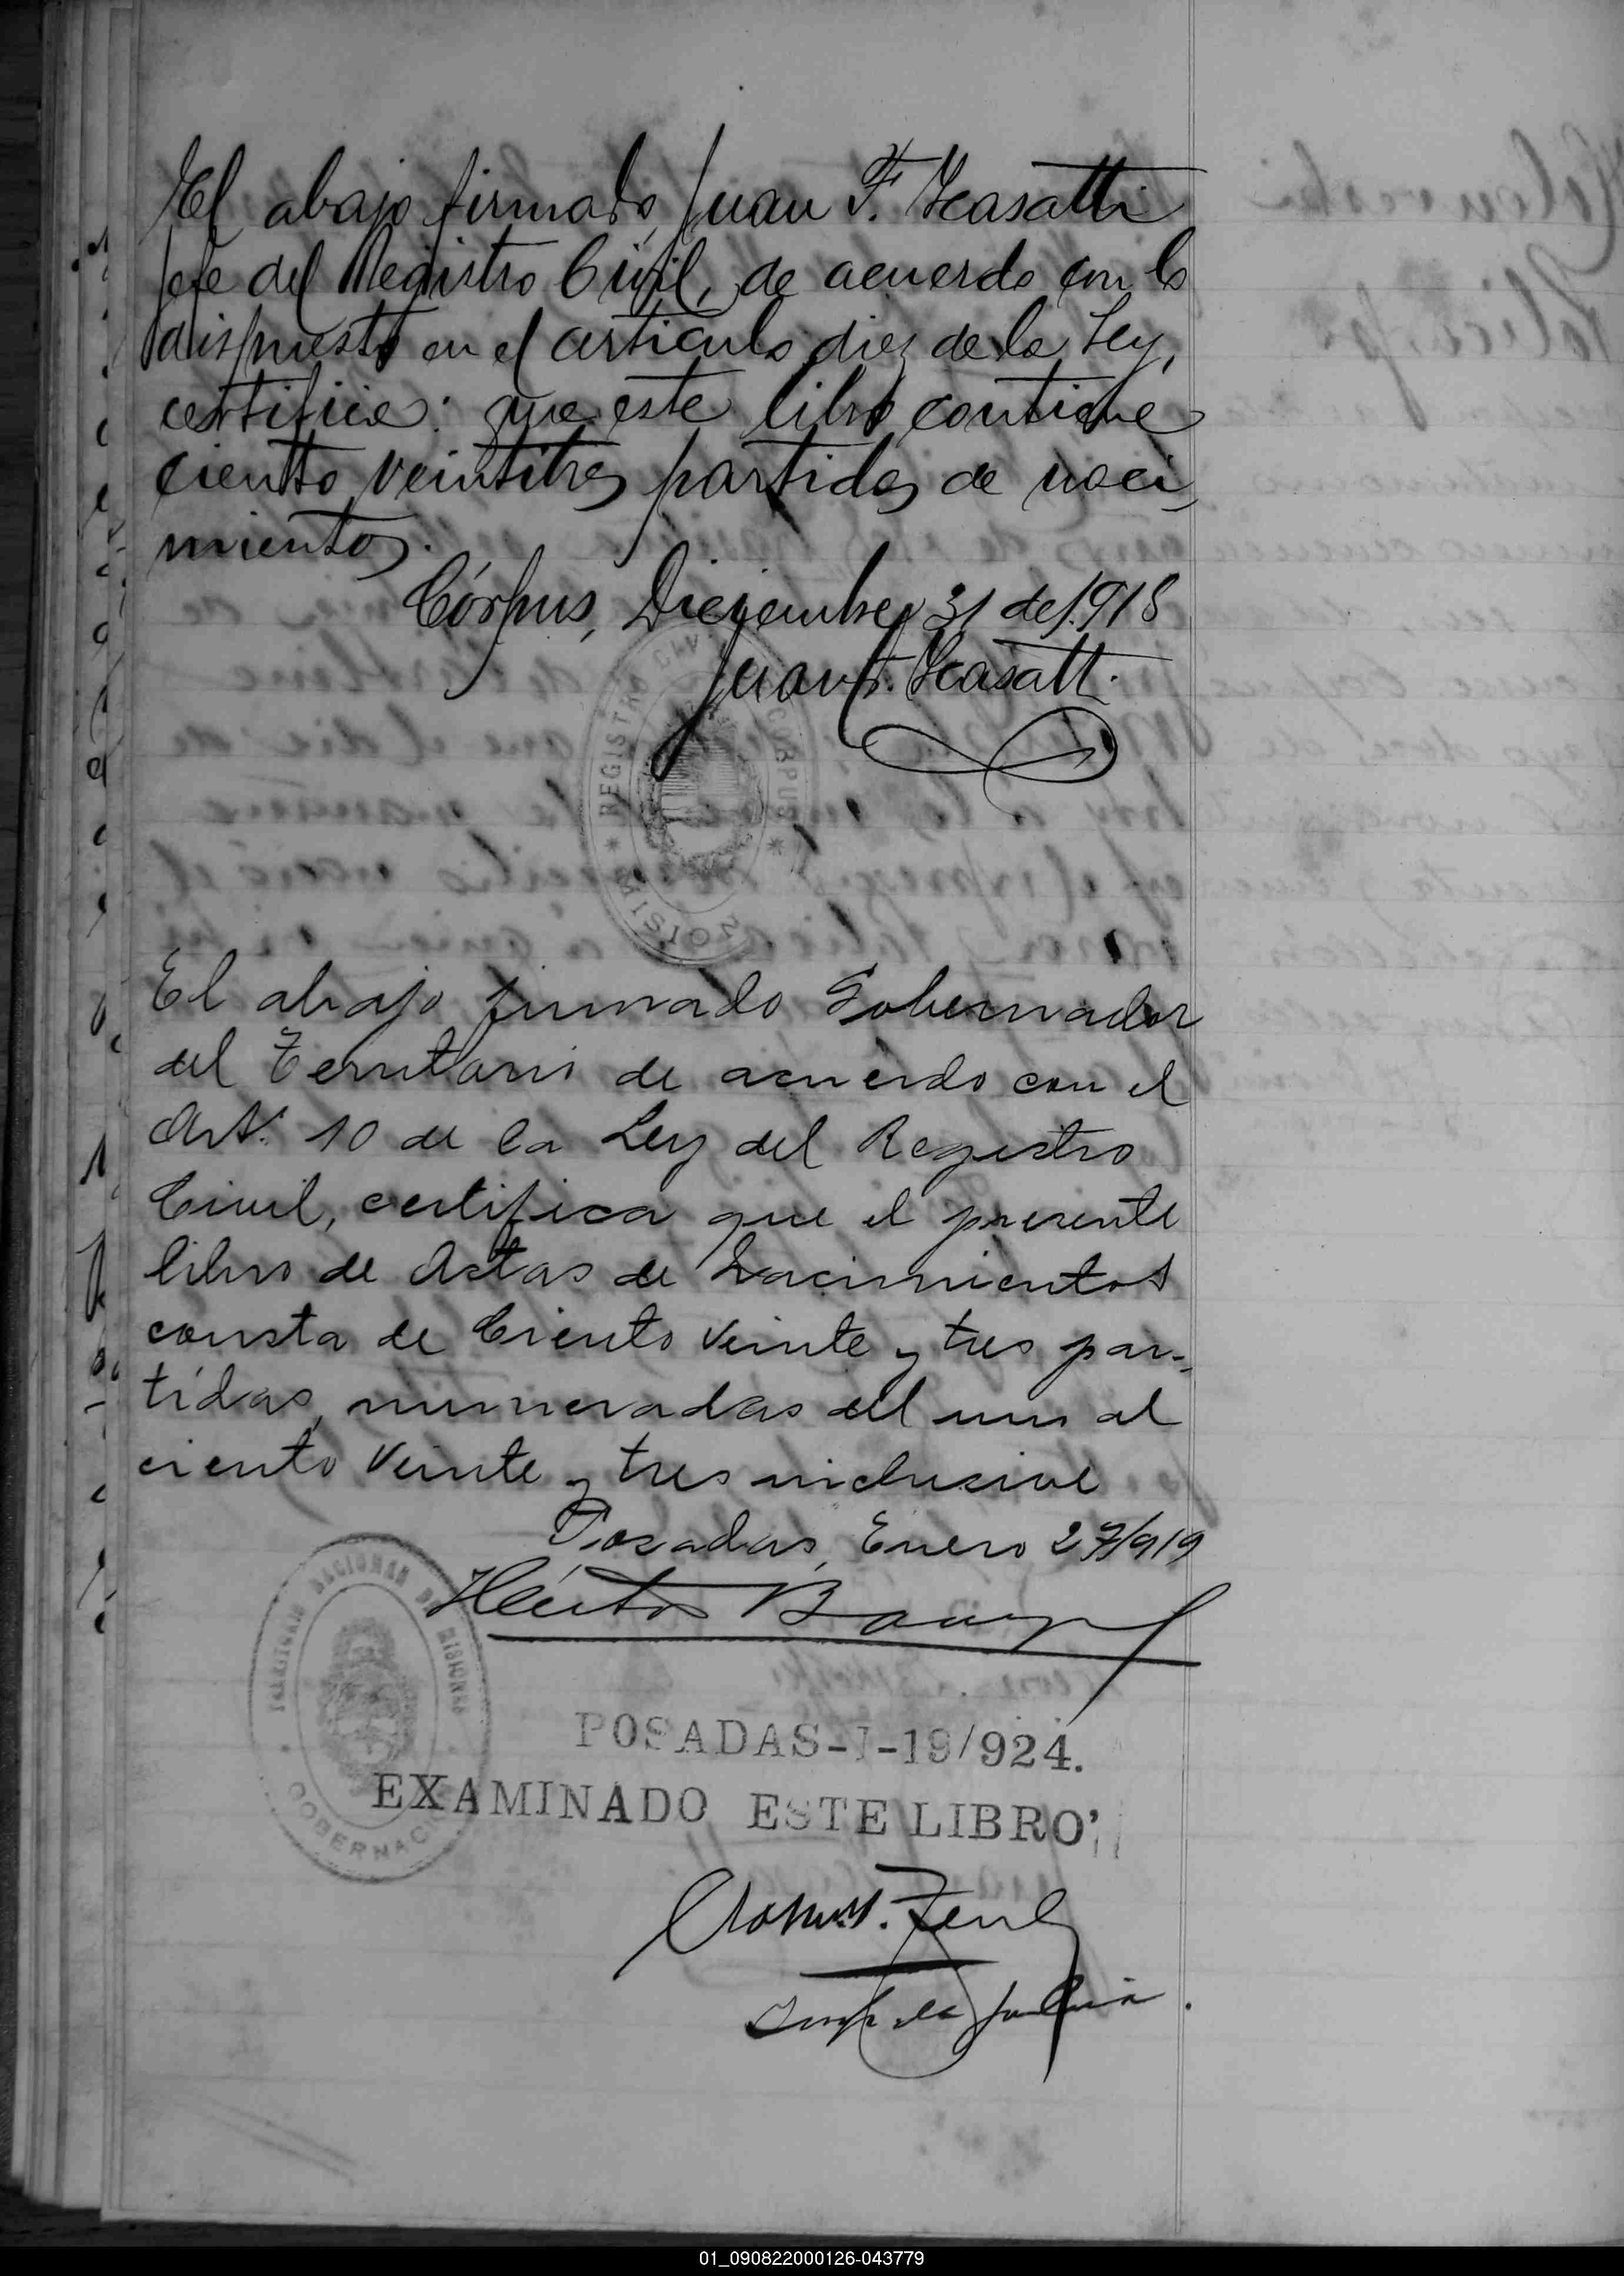 El abajo firmado, Juan F.
Jefe del Registro Civil, de acuerdo con lo
dispuesto en el articulo diez de la Ley,
certifica: que este libro contiene
ciento veintitres partidas de naci
mientos.
Córpus, Diciembre 31 de 1918
Juan F.
REGISTRO CIVIL CORPUS
MISIONES
El abajo firmado Gobernador
del Territorio de acuerdo con el
Art. 10 de la Ley del Registro
Civil, certifica que el presente
libro de Actas de Nacimientos
consta de Ciento Veinte y tres par-
tidas, numeradas del uno al
ciento Veinte y tres inclusive
Posadas, Enero 27/919
Héctor
TERRITORIO NACIONAL DE MISIONES
GOBERNACION
POSADAS-I-19/924.
EXAMINADO ESTE LIBRO
01_090822000126-043779